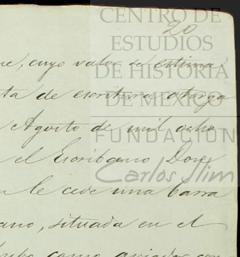 CENTRO DE
ESTUDIOS
DE HISTORIA
DE MÉXICO
FUNDACIÓN
Carlos Slim
20
, cuyo valor se estima
de escritura otorga
Agosto de mil ocho
el Escribano Don
le cede una barra
ano, situada en el
como aviador con